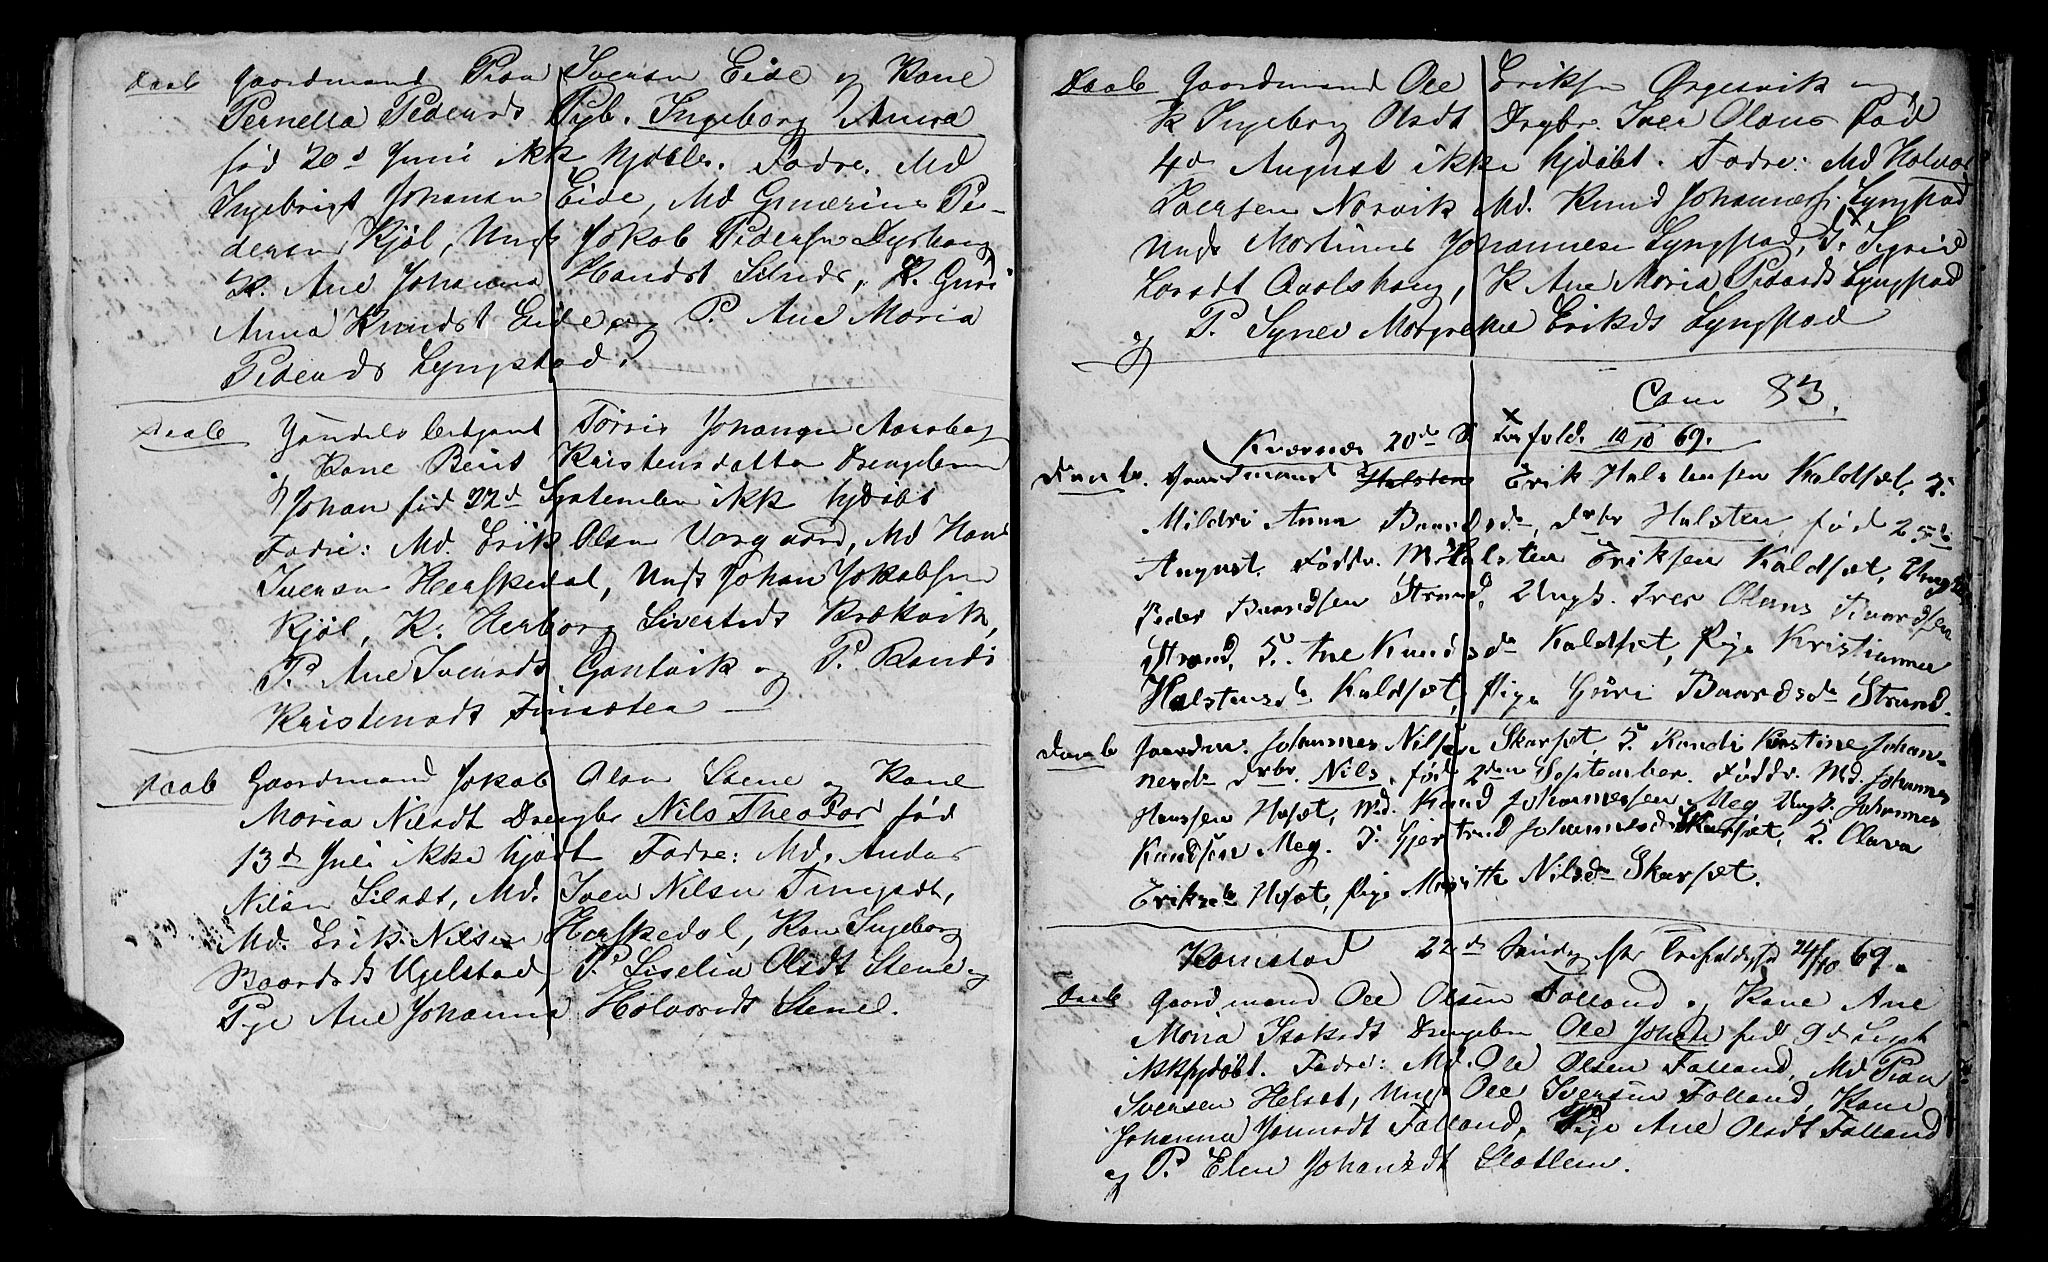 Daab Gaardmand Peder Iversen Eide og Kone
Pernella Pedersdt Pigb. Ingeborg Anna
fød 20d Juni ikk hjdbt. Fadre. Md
Ingebrigt Johansen Eide, Md Gunerius Pe-
dersen Kjøl, Ungk Jakob Pedersen Dyrhaug
K. Ane Johanna Hansdt Silseds, K. Guri
Anna Knudsdt Eide og P. Ane Maria
Pedersdt Lyngstad.
Daab Handelsbetjent Johansen
og Kone Berit Kristensdatter Drengebarn
Johan fød 22d September ikk hjdøbt
Fadre: Md. Erik Olsen Vorgaard, Md Hans
Iversen Herskedal, Ungk Johan Jakobsen
Kjøl, K. Herborg Sivertsdt Brækvik,
P. Ane Iversdt Gautvik og P. Randi
Kristensdt
Daab Gaardmand Jakob Olsen Stene og Kone
Maria Nilsdt Drengbr Nils Theodor fød
13d Juli ikke hjdbt Fadre: Md. Anders
Nilsen Silsædt, Md. Iver Nilsen
Md. Erik Nilsen Herskedal, Kone Ingeborg
Baardsdt Ugelstad, P. Olsdt Stene og
Pige Ane Johanna Halvorsdt Stene.
Daab Gaardmand Ole Eriksen Ørgesvik og
K Ingeborg Olsdt Drgbr. Iver Olaus fød
4d August ikke hjdøbt. Fadre: Md Halvor
Iversen Norvik Md. Knud Johanness. Lyngstad
Ungk Martinus Johannesen Lyngstad, K. Sigrid
Larsdt Aoalshaug, K Ane Maria Pedersdt Lyngstad
og P. Synev Margrethe Eriksdt Lyngstad
Cam 83.
Kværnæs 20de S e Trefold. 10/10 69.
Daab. Gaardmand Halsten Erik Halstensen Kaldset, K.
Mildri Anna Baardsda, drbr Halsten, fød 25de
August. Faddr. M. Halsten Eriksen Kaldsæt, Ungk
Peder Baardsen Strand, Ungk. Iver Olaus Baardsen
Strand, K. Ane Knudsda Kaldsæt, Pige Kristianna
Halstensda Kaldsæt, Pige Guri Baardsda Strand.
Daab Gaardm. Johannes Nilsen Skarsæt, K. Randi Kirstine Johan-
nesda drbr. Nils, fød 2den September. Faddr. Md. Johannes
Hansen Husæt, Md. Knud Johannessen Meg Ungk. Johannes
Knudsen Meg. K. Gjertrud Johannesda Skarsæt, K. Olava
Eriksda Husæt, Pige Marith Nilsda Skarsæt.
Kornstad 22de Søndag efter Trefoldighed 24/10 69.
Daab Gaardmand Ole Olsen Folland og Kone Ane
Maria Isaksdt Drengebn Ole Johan fød 9d Sept
ikk hjdøbt. Fadre: Md. Ole Olsen Folland, Md Peder
Iversen Helset, Ungk Ole Iversen Folland, Kone
Johanna Jonnsdt Folland, Pige Ane Olsdt Folland
og P. Elen Johansdt Slatlem.